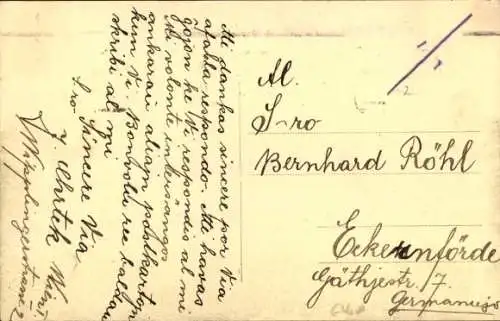 Mi dankas sincere por Via
afabla respondo. Mi havas
gojon ke Vi respondis al mi
Mi volonte interŝanĝos
ankaraŭ aliajn poŝtkartojn
kun Vi. Bonvolu ree baldaŭ
skribi al mi
Sincere Via
S-ro
J. Wipplingerstrasse 2
Al.
S-ro
Bernhard Röhl
Eckernförde
Gäthjestr. 7.
Germanujo